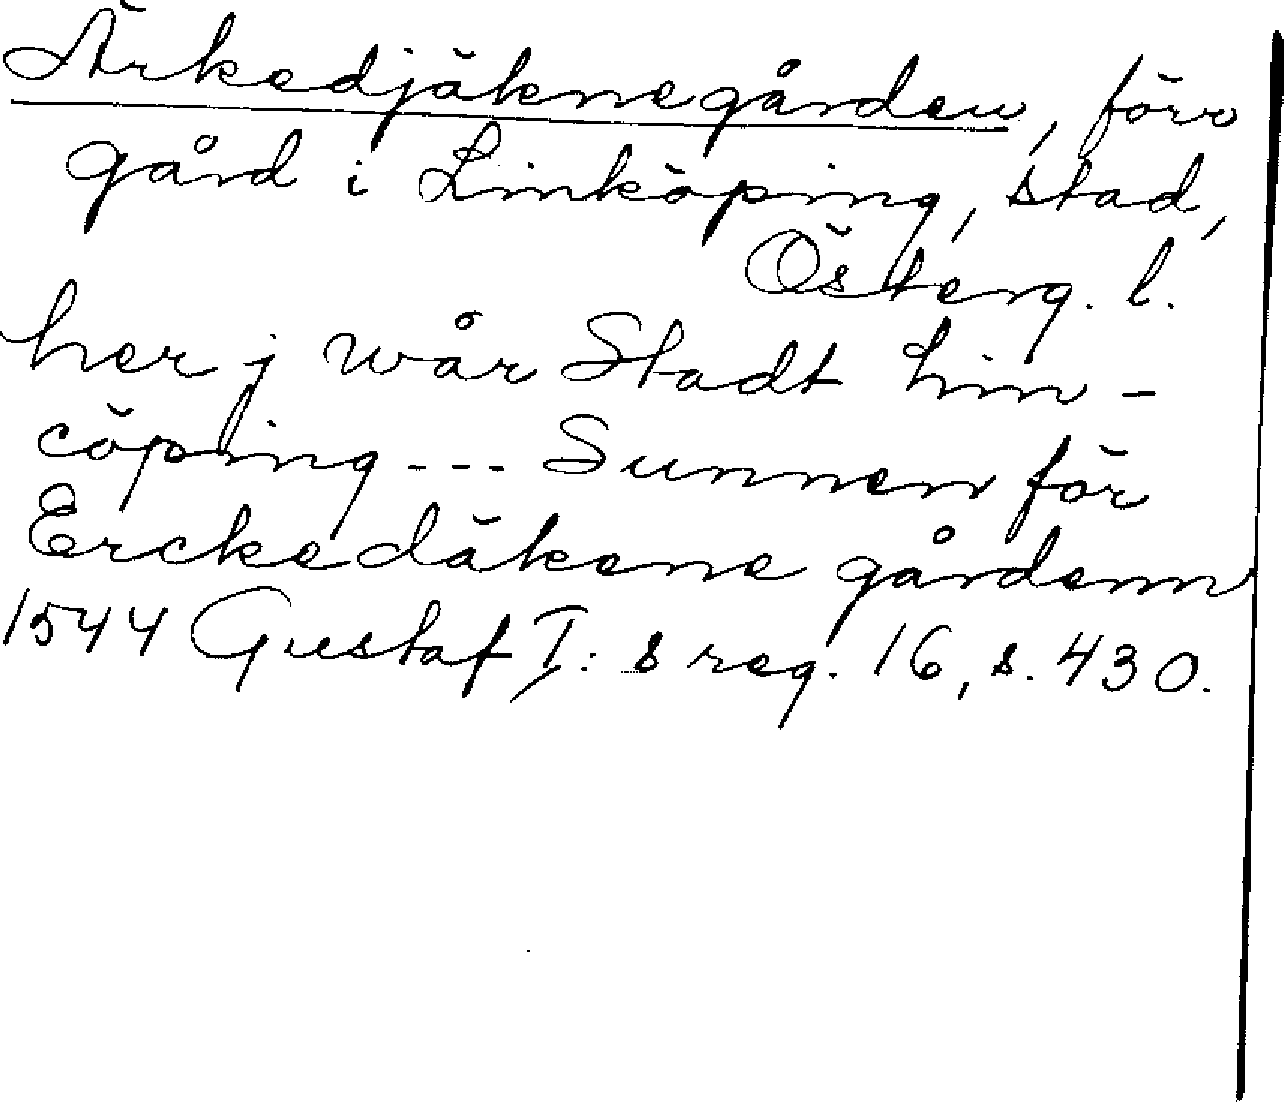 Ärkedjäknegården, förr
gård i Linköping, stad,
Österg. l.
her j wår Stadt Lin-
cöping --- Sunnen för
Erckedäkene gårdenn
1544 Gustaf I:s reg. 16, s. 430.